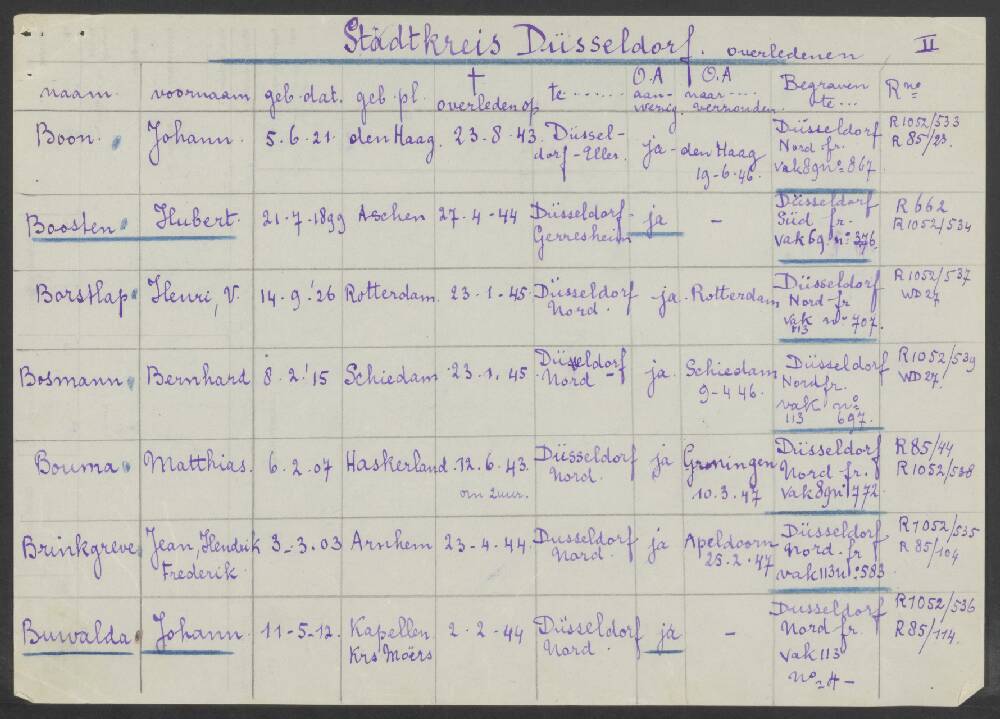 Städtkreis Düsseldorf. overledenen II
naam. voornaam geb. dat. geb. pl. † overleden op te ...... O.A aan-wezig. O.A naar .... verzonden. Begraven te... R no
Boon. Johann. 5.6.21. den Haag. 23-8-43. Düssel-
dorf-Eller. ja - den Haag
19-6-46. Düsseldorf
Nord fr.
vak 89 no= 867 R1052/533
R 85/23.
Boosten. Hubert. 21-7-1899 Aschen 27.4-44 Düsseldorf-
Gerresheim ja - Düsseldorf
Süd fr.
vak 69. no 376. R 662
R1052/534
Borstlap. Henri, V. 14-9.'26 Rotterdam. 23-1-45. Düsseldorf
Nord. ja. Rotterdam Düsseldorf
Nord-fr
vak no 707.
113 R1052/537
WD 27
Bosmann. Bernhard 8.2.'15 Schiedam 23.1.45 Düsseldorf
Nord - ja. Schiedam
9-4 46. Düsseldorf
Nord fr.
vak no=
113 697. R1052/539
WD 27.
Bouma. Matthias. 6.2.07 Haskerland. 12.6.43.
om 2 uur. Düsseldorf
Nord. ja Groningen
10.3.47 Düsseldorf
Nord-fr.
vak 89 no 772 R 85/44
R1052/538
Brinkgreve Jean, Hendrik
Frederik. 3-3.03 Arnhem 23-4.44. Dusseldorf
Nord. ja Apeldoorn
25.2.47 Düsseldorf
Nord.fr
vak 113 no= 583 R1052/535
R 85/104
Buwalda. Johann. 11-5-12. Kapellen
Krs Moërs 2-2-44 Düsseldorf
Nord. ja - Dusseldorf
Nord fr.
vak 113
no= 4- R1052/536
R85/114.